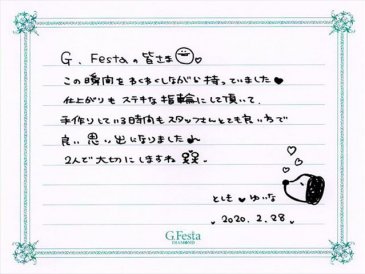 G. Festaの皆さま
この瞬間をわくわくしながら待っていました♥
仕上がりもステキな指輪にして頂いて、
手作りしている時間もスタッフさんとても良い方で
良い思い出になりました
2人で大切にしますね
としき♥ゆいな
2020.2.28
G.Festa
DIAMOND